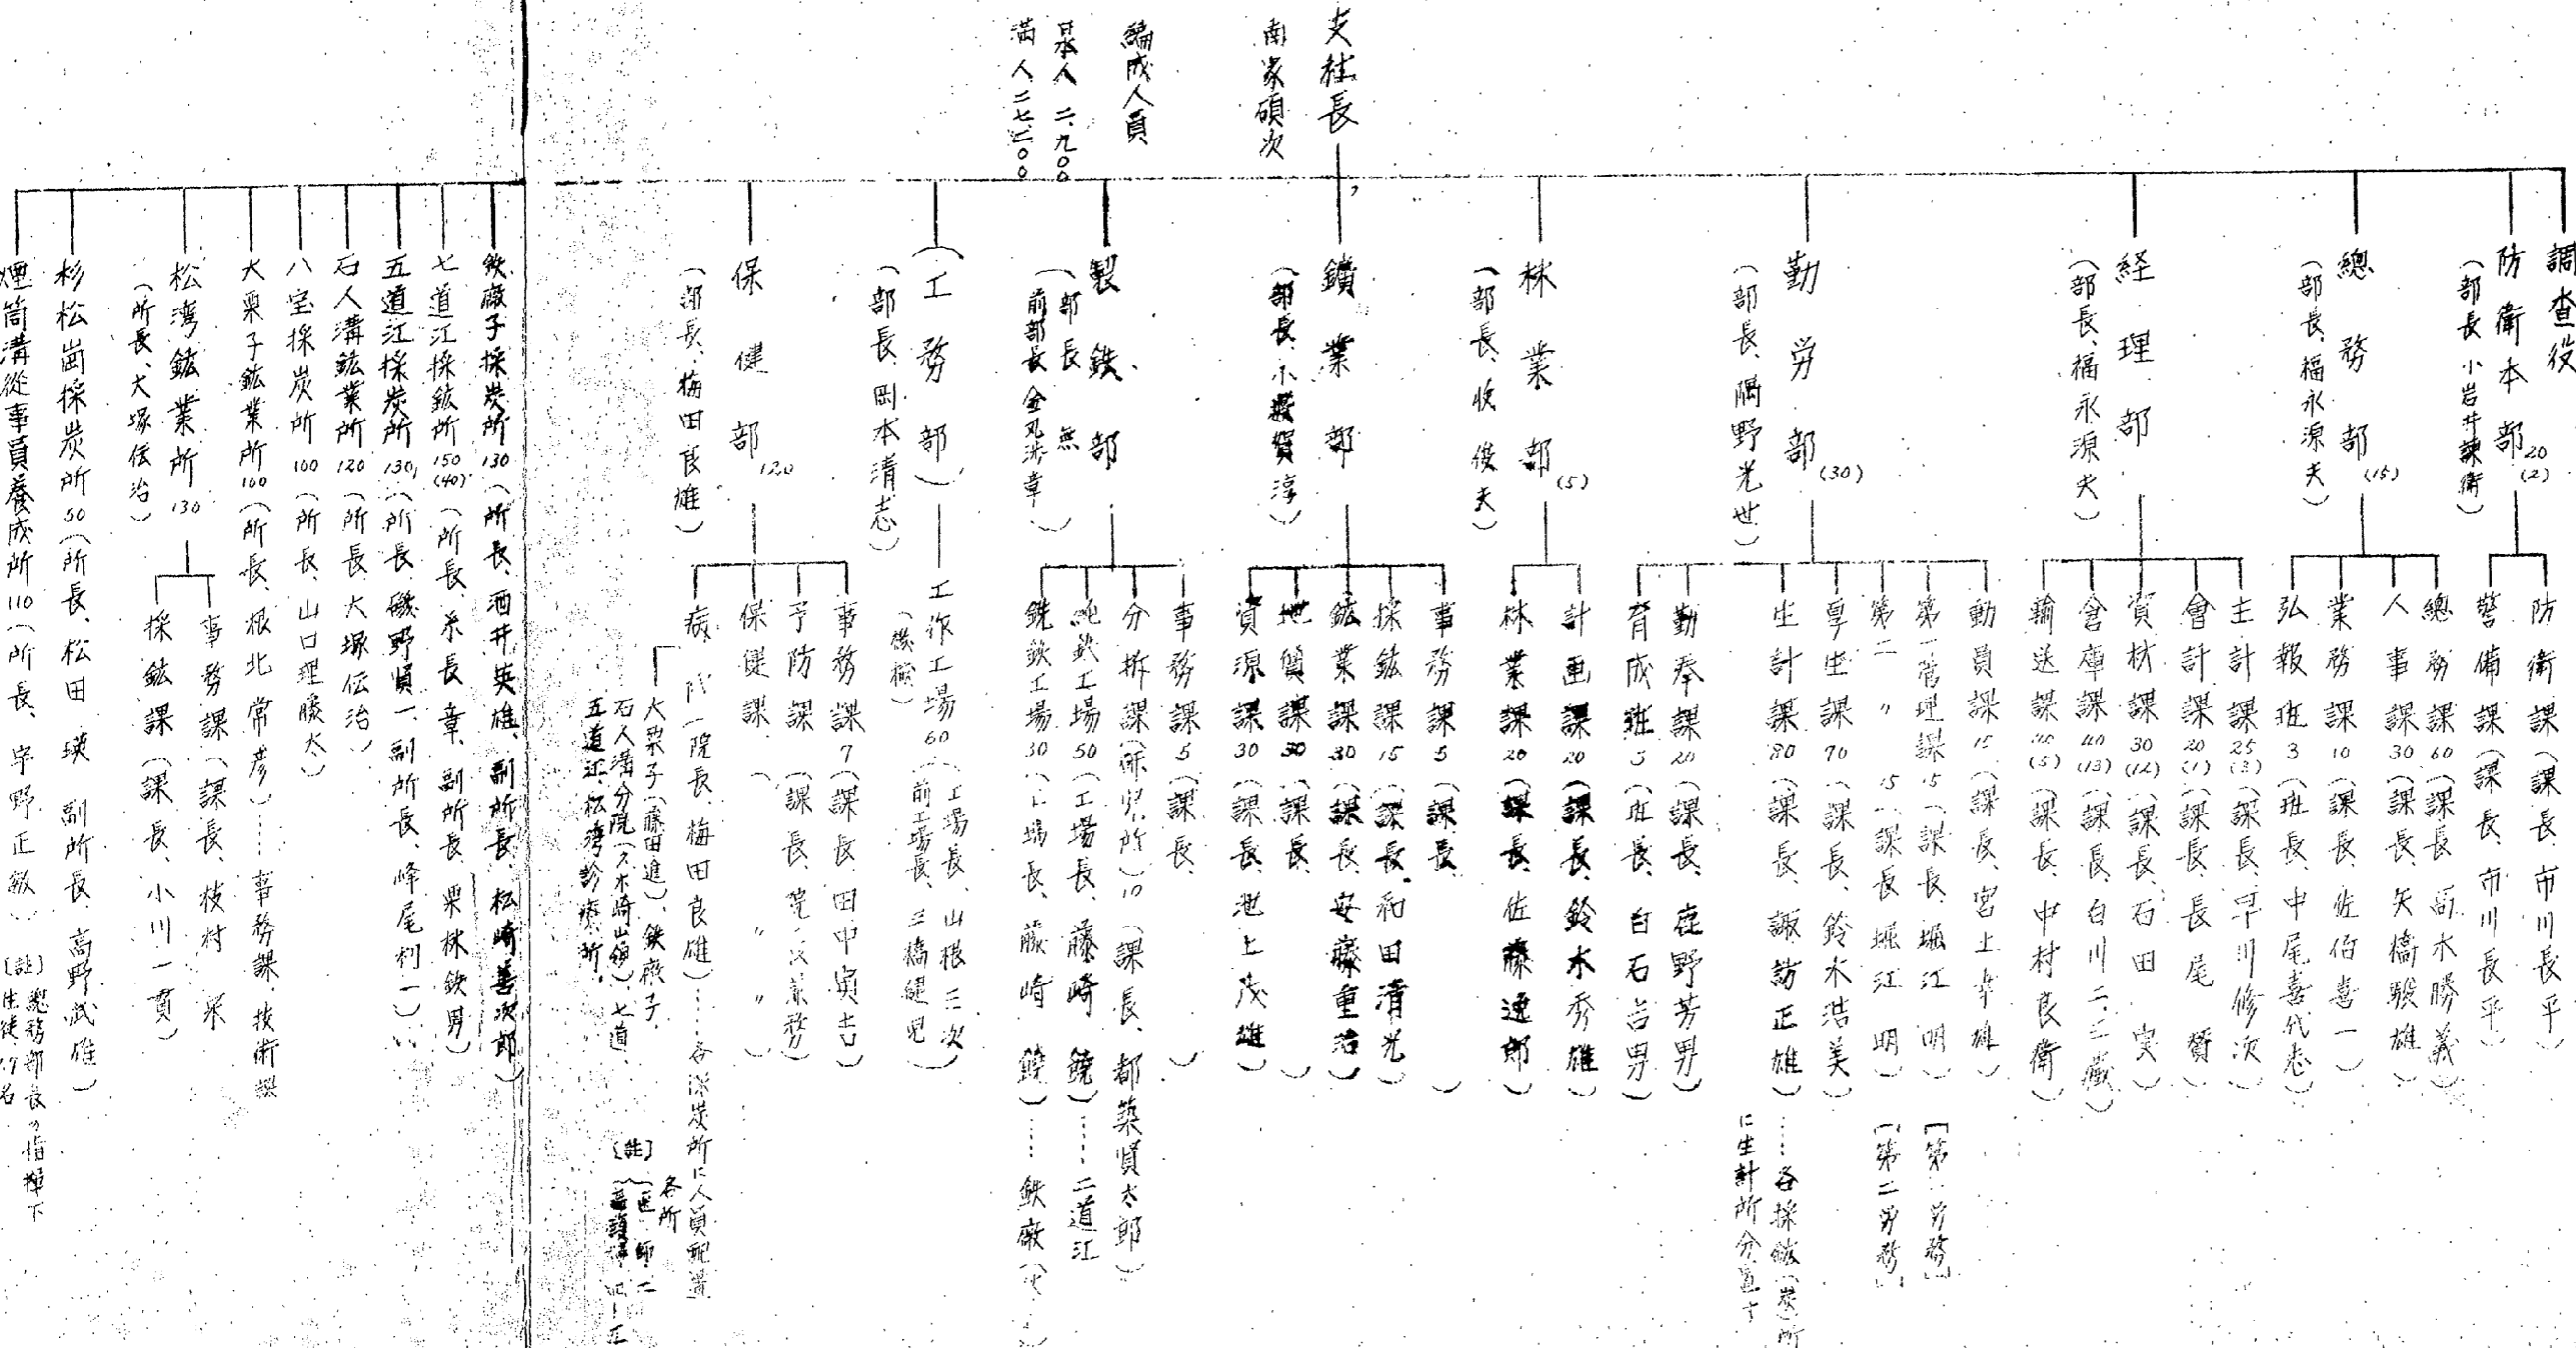 支社長
南家碩次
編成人員
日本人 二、九〇〇
満人 二七、二〇〇
調査役
防衛本部 20 (2)
(部長 小岩井諌衛)
防衛課 (課長、市川長平)
警備課 (課長、市川長平)
總務部 (15)
(部長、福永源夫)
總務課 60 (課長、高木勝義)
人事課 30 (課長、矢橋駿雄)
業務課 10 (課長、佐伯喜一)
弘報班 3 (班長、中尾喜代志)
経理部
(部長、福永源夫)
主計課 25 (3) (課長、早川修次)
會計課 20 (1) (課長、長尾 賛)
資材課 30 (12) (課長、石田 実)
倉庫課 40 (13) (課長、白川二三蔵)
輸送課 (5) (課長、中村良衛)
勤労部 (30)
(部長、隅野光世)
動員課 15 (課長、宮上幸雄)
第一管理課 15 (課長、堀江 明) [第一労務]
第二 〃 15 (課長 堀江 明) [第二労務]
厚生課 70 (課長、鈴木浩美)
生計課 80 (課長、諏訪正雄)……各採鉱(炭)所
に生計所分置す
勤奉課 20 (課長、庄野芳男)
育成班 5 (班長、白石吉男)
林業部 (5)
(部長、牧 俊夫)
計画課 20 (課長、鈴木秀雄)
林業課 20 (課長、佐藤達郎)
鑛業部
(部長、小 賀 淳)
事務課 5 (課長、 )
採鉱課 15 (課長、和田清光)
鉱業課 30 (課長、安藤重治)
地質課 30 (課長、 )
資源課 30 (課長、池上茂雄)
製鉄部
(部長 無
前部長 金丸 章)
事務課 5 (課長、 )
分析課 (研究所) 10 (課長、都築賢太郎)
純鉄工場 50 (工場長、藤崎 鐃)……二道江
銑鉄工場 30 (工場長、藤崎 鐃)……鉄廠
(工務部)
(部長、岡本清志)
工作工場 60 (工場長、山根三次)
(機械) (前工場長、三橋健児)
保健部 120
(部長、梅田良雄)
事務課 7 (課長、田中寅吉)
予防課 (課長、院長兼務)
保健課 ( 〃 〃 )
病院 (院長、梅田良雄)……各採炭所に人員配置
大栗子 (藤田進)、鉄廠子、
石人溝分院 七道、
五道江、松湾診療所。
〔註〕 各所
医師 二
看護婦
鉄廠子採炭所 130 (所長、酒井英雄、副所長、松崎善次郎)
七道江採鉱所 150 (40) (所長、糸長 章、副所長、栗林鉄男)
五道江採炭所 130 (所長、磯野賢一、副所長、峰尾利一)
石人溝鉱業所 120 (所長、大塚伝治)
八宝採炭所 100 (所長、山口理勝太)
大栗子鉱業所 100 (所長、根北常彦)……事務課、技術課
松湾鉱業所 130
(所長、大塚伝治)
事務課 (課長、枝村 栄)
採鉱課 (課長、小川一貫)
杉松崗採炭所 50 (所長、松田 瑛 副所長、高野武雄)
煙筒溝從事員養成所 110 (所長、宇野正敏)
〔註〕 總務部長の指揮下
生徒 名